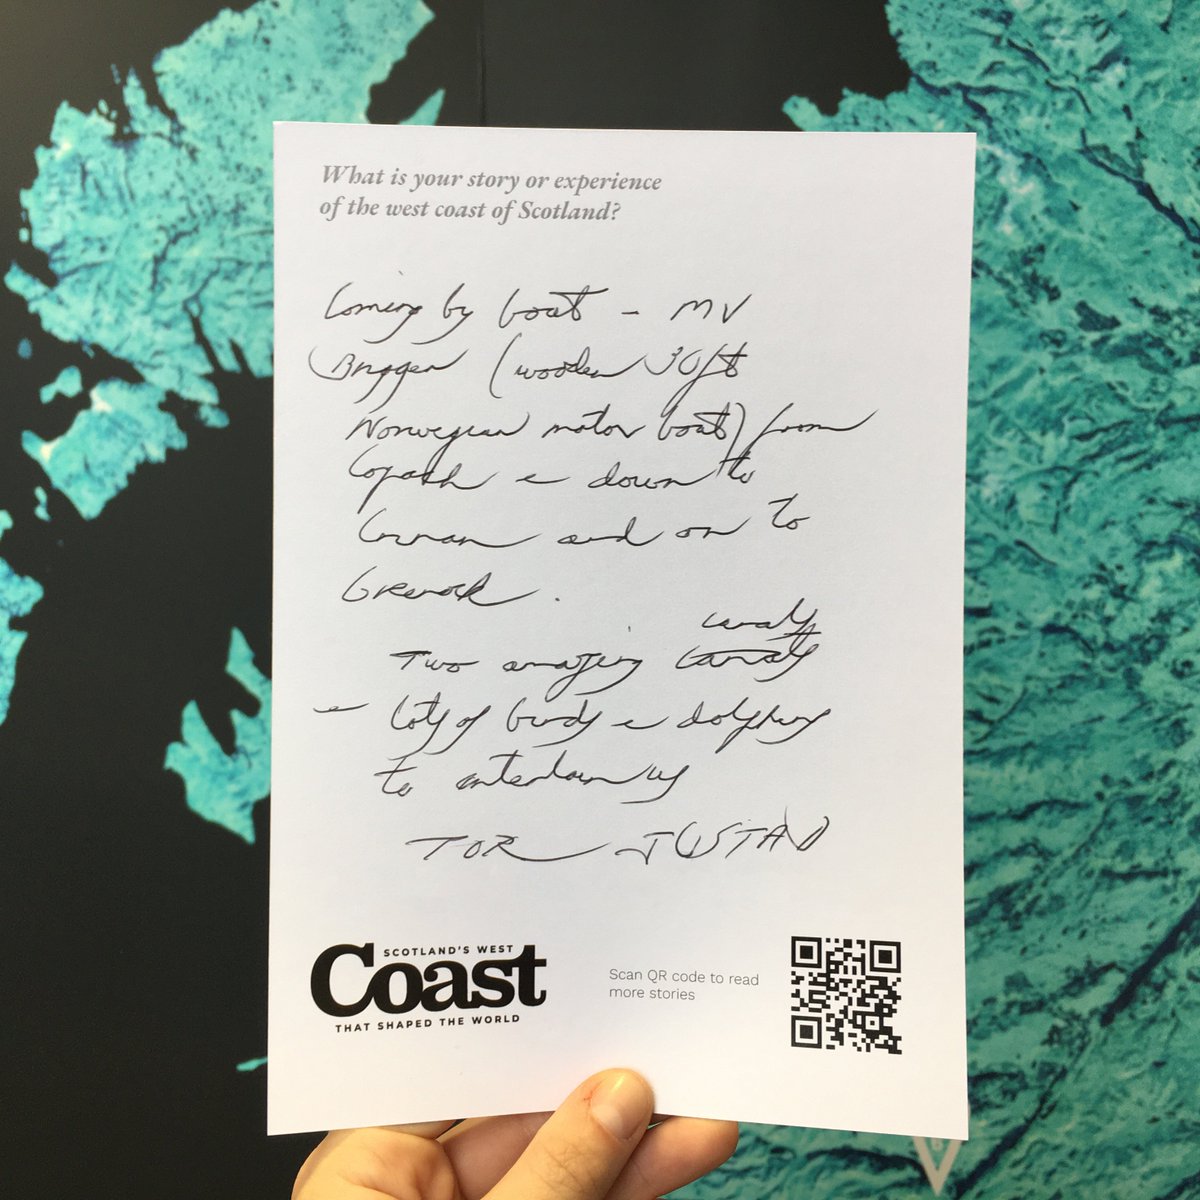 What is your story or experience
of the west coast of Scotland?
Coming by boat - MV
(wooden 30ft
Norwegian motor boat) from
down to
Crinan and on to
Greenock.
canals
Two amazing canals
- lots of birds & dolphins
to entertain us
TOR JUSTAD
SCOTLAND'S WEST
Coast
THAT SHAPED THE WORLD
Scan QR code to read
more stories